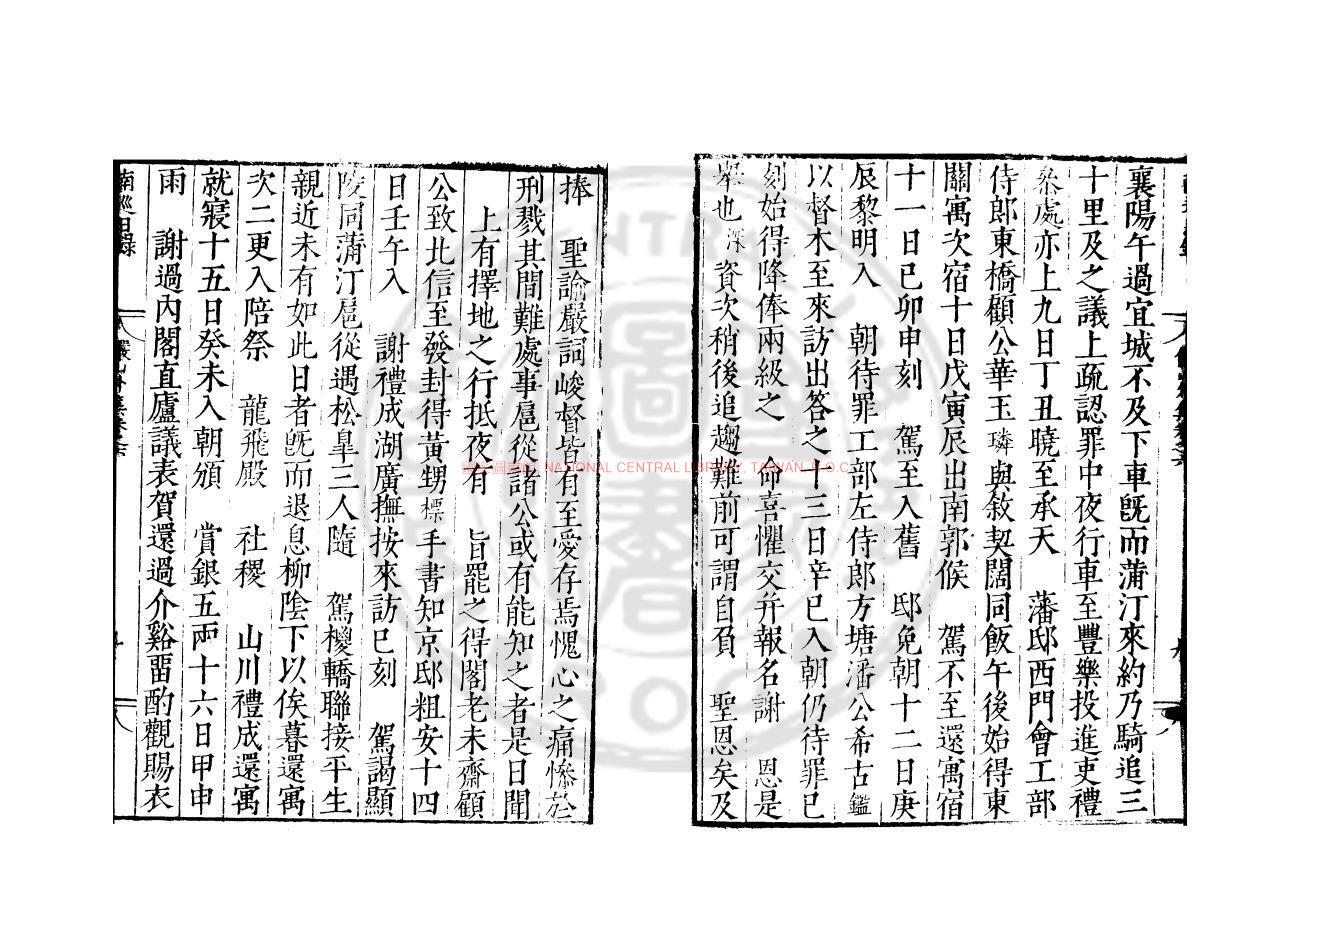 襄陽午過宜城不及下車旣而蒲汀來約乃騎追三
十里及之議上疏認罪中夜行車至豐樂投進吏禮
叅處亦上九日丁丑曉至承天 藩邸西門會工部
侍郎東橋顧公華玉璘與敘契闊同飯午後始得東
關寓次宿十日戊寅辰出南郭候 駕不至還寓宿
十一日己卯申刻 駕至入舊 邸免朝十二日庚
辰黎明入 朝待罪工部左侍郎方塘潘公希古鑑
以督木至來訪出答之十三日辛巳入朝仍待罪巳
刻始得降俸兩級之 命喜懼交幷報名謝 恩是
舉也深資次稍後追趨難前可謂自孤 聖恩矣及
捧 聖諭嚴詞峻督皆有至愛存焉愧心之痛慘於
刑戮其間難處事扈從諸公或有能知之者是日聞
上有擇地之行抵夜有 旨罷之得閣老未齋顧
公致北信至發封得黃甥標手書知京邸粗安十四
日壬午入 謝禮成湖廣撫按來訪巳刻 駕謁顯
陵同蒲汀扈從遇松皐三人隨 駕櫻轎聯接平生
親近未有如此日者旣而退息柳陰下以俟暮還寓
次二更入陪祭 龍飛殿 社稷 山川禮成還寓
就寢十五日癸未入朝頒 賞銀五兩十六日甲申
雨 謝過內閣直廬議表賀還過介谿畱酌觀賜衣
南巡日錄